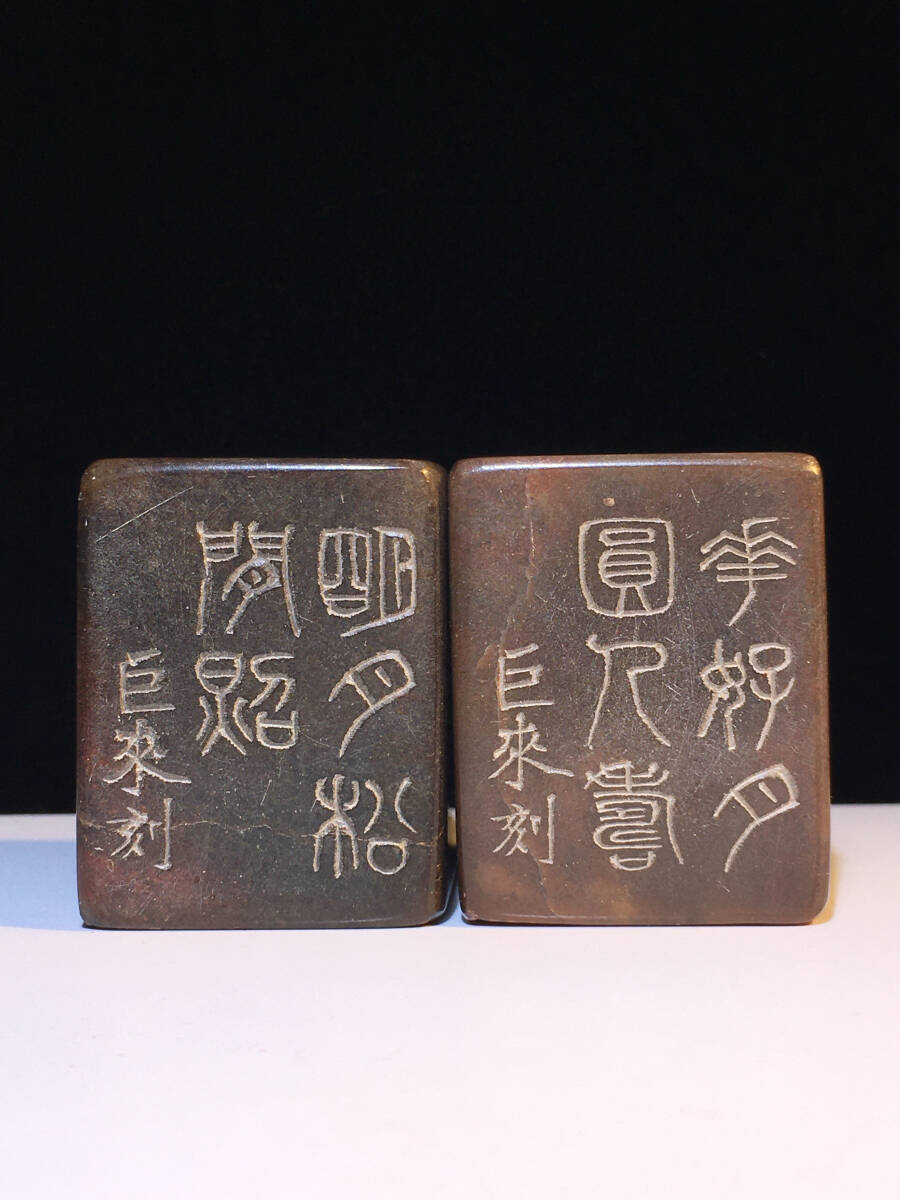 明月松
間照
巨來刻
華好月
圓人壽
巨來刻